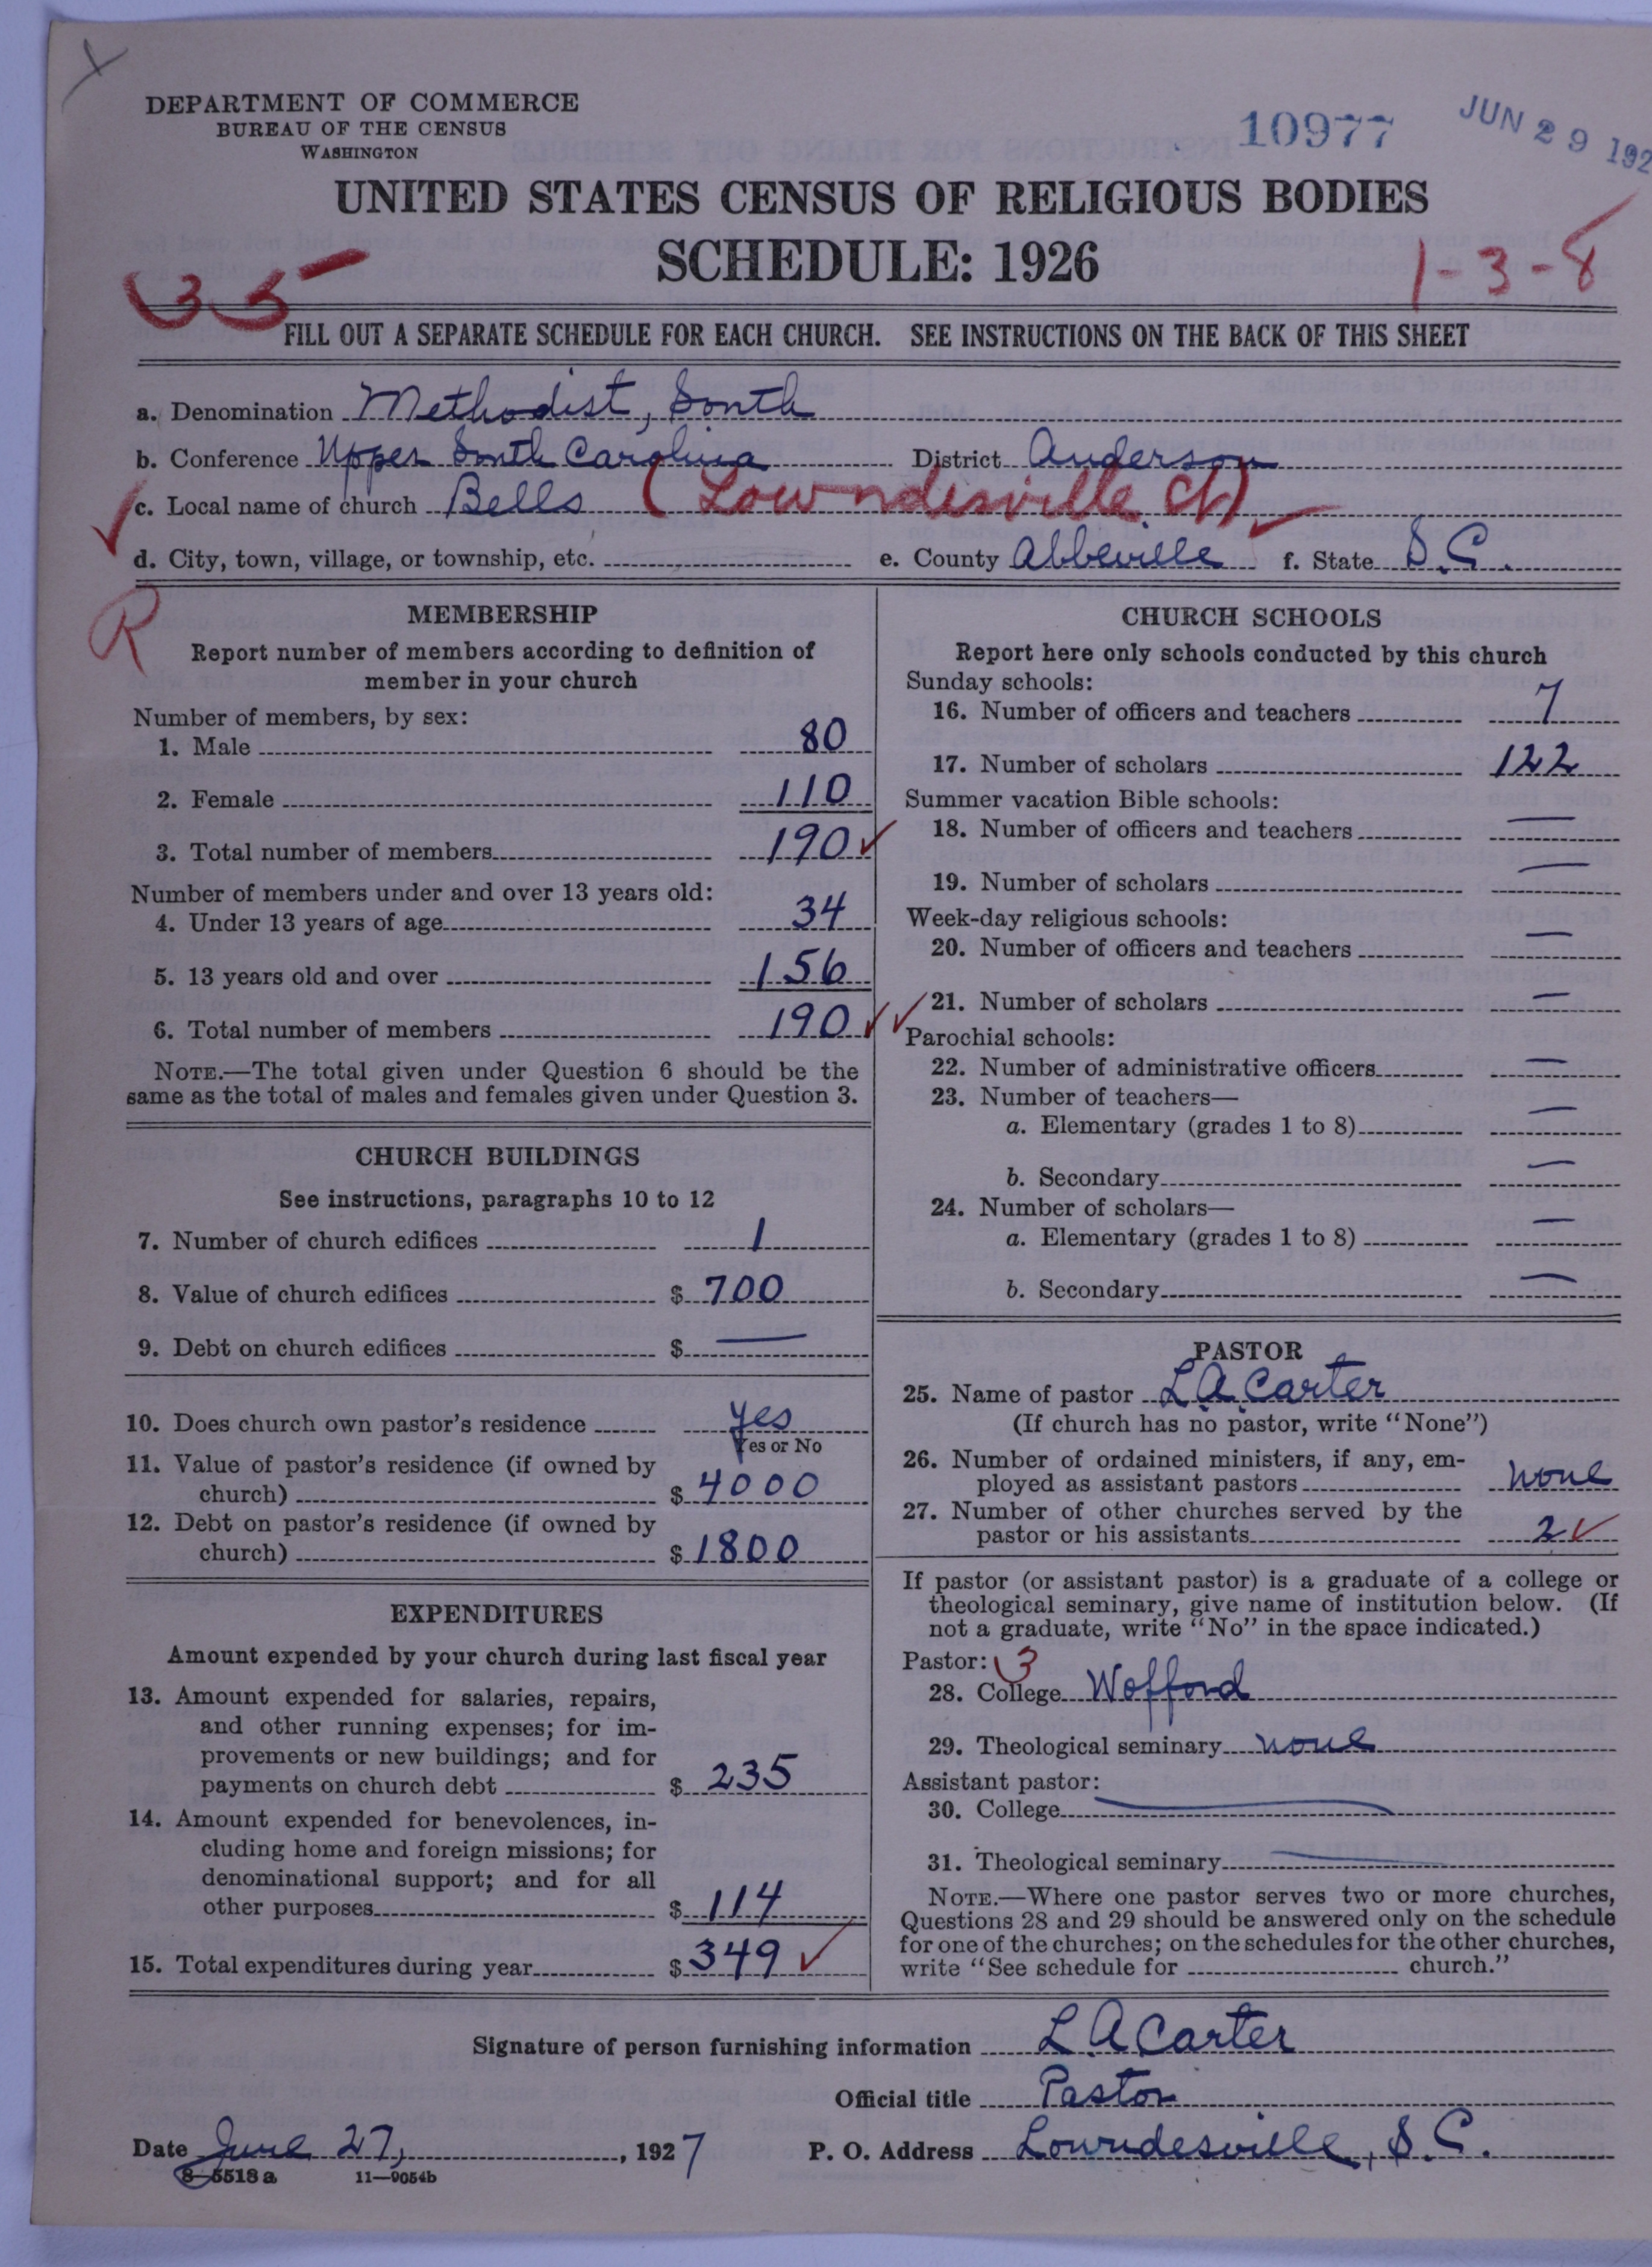 DEPARTMENT OF COMMERCE
BUREAU OF THE CENSUS
WASHINGTON
10977
JUN 29 192
UNITED STATES CENSUS OF RELIGIOUS BODIES
SCHEDULE: 1926
35
1-3-8
FILL OUT A SEPARATE SCHEDULE FOR EACH CHURCH. SEE INSTRUCTIONS ON THE BACK OF THIS SHEET
a. Denomination Methodist, South
b. Conference Upper South Carolina District Anderson
c. Local name of church Bells (Lowndesville Ch)
d. City, town, village, or township, etc. e. County Abbeville f. State S.C.
R
MEMBERSHIP
Report number of members according to definition of
member in your church
Number of members, by sex:
1. Male 80
2. Female 110
3. Total number of members 190
Number of members under and over 13 years old:
4. Under 13 years of age 34
5. 13 years old and over 156
6. Total number of members 190
NOTE.—The total given under Question 6 should be the
same as the total of males and females given under Question 3.
CHURCH BUILDINGS
See instructions, paragraphs 10 to 12
7. Number of church edifices 1
8. Value of church edifices $ 700
9. Debt on church edifices $ —
10. Does church own pastor's residence yes
Yes or No
11. Value of pastor's residence (if owned by
church) $ 4000
12. Debt on pastor's residence (if owned by
church) $ 1800
EXPENDITURES
Amount expended by your church during last fiscal year
13. Amount expended for salaries, repairs,
and other running expenses; for im-
provements or new buildings; and for
payments on church debt $ 235
14. Amount expended for benevolences, in-
cluding home and foreign missions; for
denominational support; and for all
other purposes $ 114
15. Total expenditures during year $ 349
CHURCH SCHOOLS
Report here only schools conducted by this church
Sunday schools:
16. Number of officers and teachers 7
17. Number of scholars 122
Summer vacation Bible schools:
18. Number of officers and teachers —
19. Number of scholars —
Week-day religious schools:
20. Number of officers and teachers —
21. Number of scholars —
Parochial schools:
22. Number of administrative officers —
23. Number of teachers—
a. Elementary (grades 1 to 8) —
b. Secondary —
24. Number of scholars—
a. Elementary (grades 1 to 8) —
b. Secondary —
PASTOR
25. Name of pastor L A Carter
(If church has no pastor, write "None")
26. Number of ordained ministers, if any, em-
ployed as assistant pastors none
27. Number of other churches served by the
pastor or his assistants 2
If pastor (or assistant pastor) is a graduate of a college or
theological seminary, give name of institution below. (If
not a graduate, write "No" in the space indicated.)
Pastor: 3
28. College Wofford
29. Theological seminary none
Assistant pastor:
30. College —
31. Theological seminary —
NOTE.—Where one pastor serves two or more churches,
Questions 28 and 29 should be answered only on the schedule
for one of the churches; on the schedules for the other churches,
write "See schedule for church."
Signature of person furnishing information L A Carter
Official title Pastor
Date June 27, 1927 P. O. Address Lowndesville, S.C.
8-5518 a 11—9054b